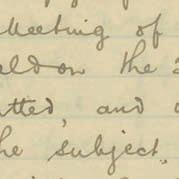 Meeting of
held on the
tted, and
the subject.